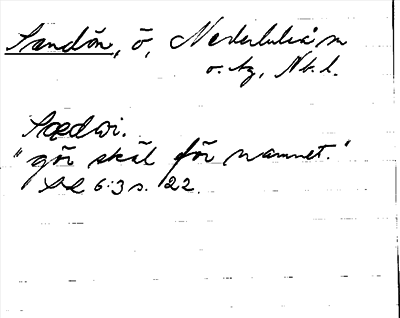 Sandön, ö, Nederluleå sn
o. tg, Nb. l.
Sædwi.
"gör skäl för namnet."
SL 6:3 s. 22.